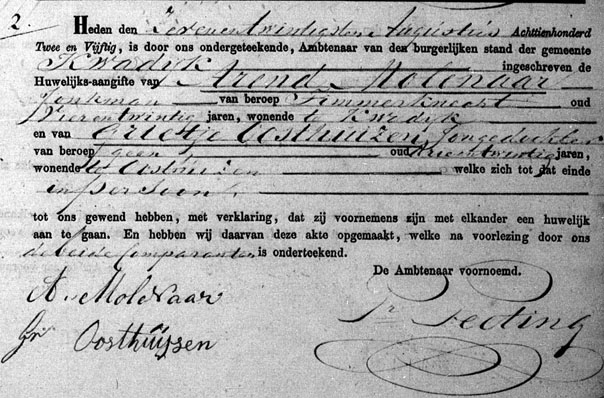 2.
HEDEN den Zevenentwintigsten Augustus Achttienhonderd
Twee en Vijftig, is door ons ondergeteekende, Ambtenaar van den burgerlijken stand der gemeente
Kwadijk ingeschreven de
Huwelijks-aangifte van Arend Molenaar
Jonkman van beroep Timmerknecht oud
Vierentwintig jaren, wonende te Kwadijk
en van Grietje Oosthuizen Jongedochter
van beroep geen oud Drieentwintig jaren,
wonende te Oosthuizen welke zich tot dat einde
in persoon
tot ons gewend hebben, met verklaring, dat zij voornemens zijn met elkander een huwelijk
aan te gaan. En hebben wij daarvan deze akte opgemaakt, welke na voorlezing door ons
de beide Comparanten is onderteekend.
De Ambtenaar voornoemd.
A. MoleNaar
Gr Oosthuijsen